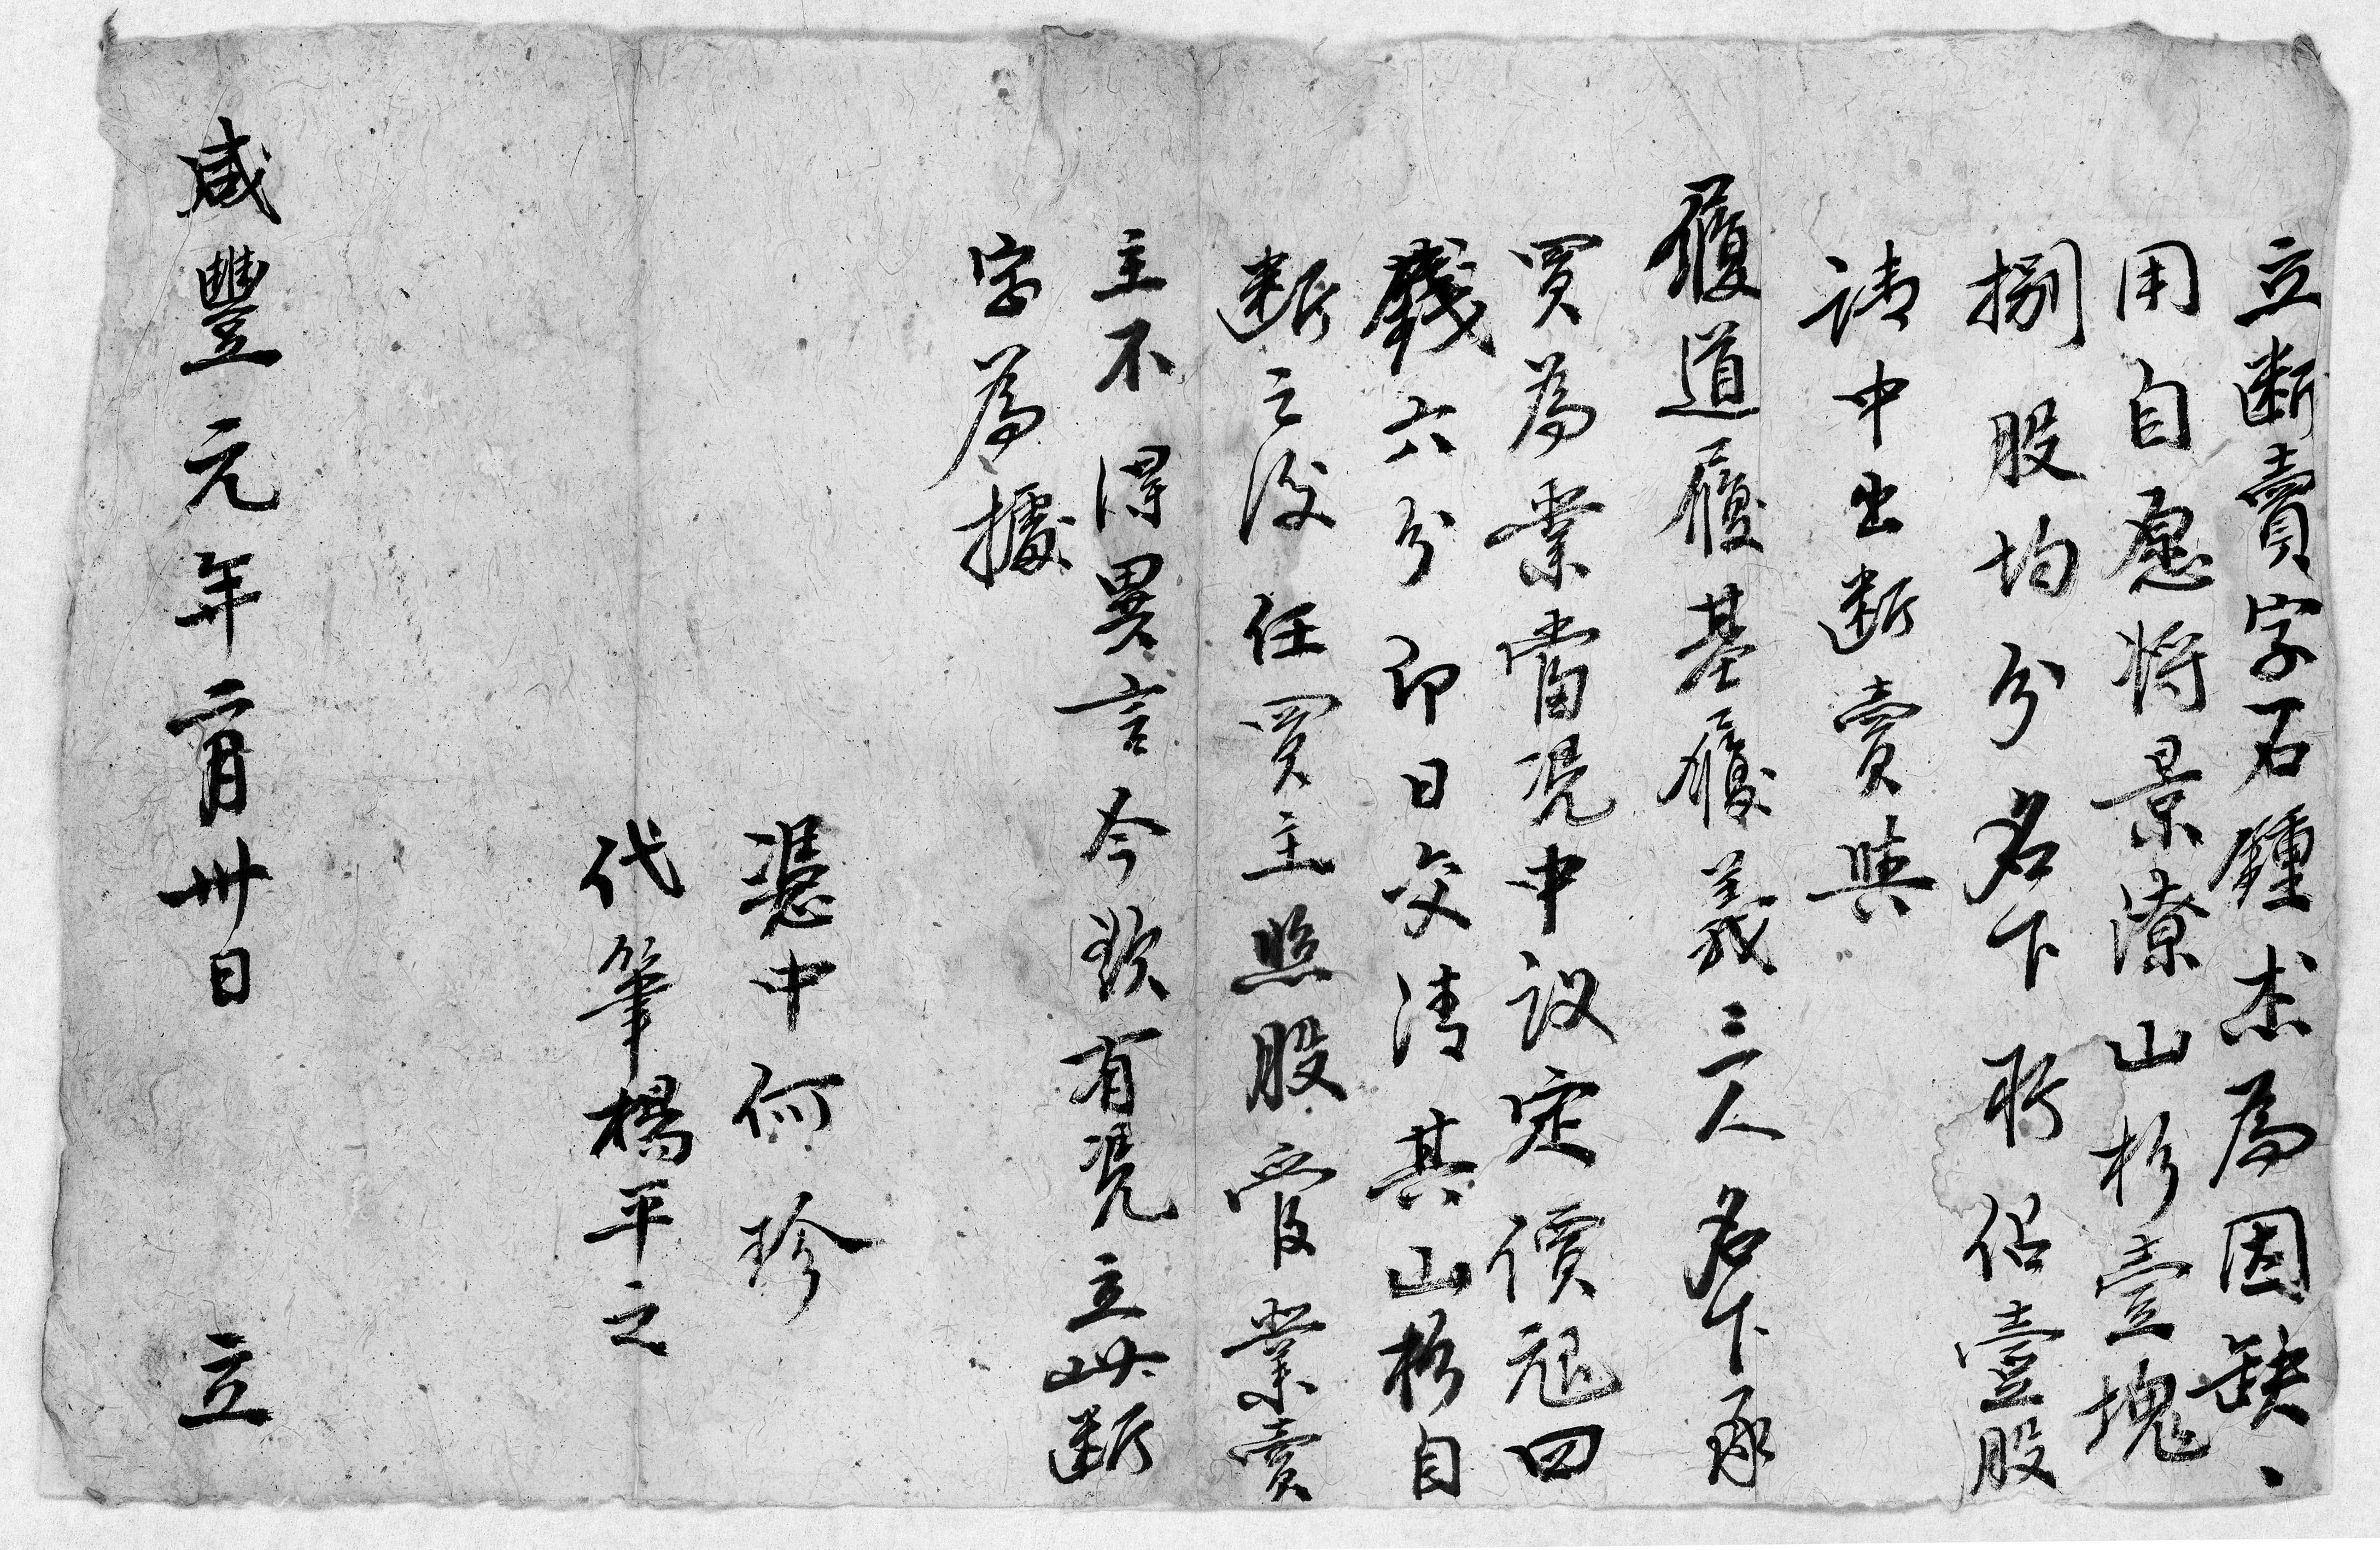 立断賣字石鍾杰為因缺、
用自愿将景潦山杉壹塊
捌股均分名下所佔壹股
請中出断賣與
履道履基履義三人名下承
買為業當凭中议定價冠四
錢六分即日交清其山杉自
断之後任買主照股管業賣
主不得異言今欲有凭立此断
字為據
憑中何珍
代筆楊平之
咸豐元年二月卅日 立